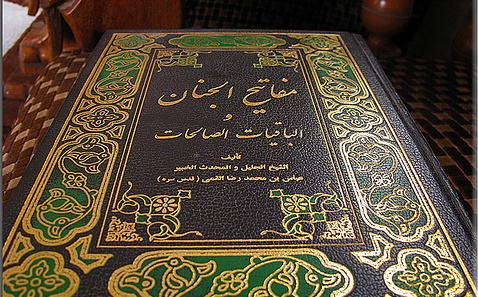 مفاتيح الجنان
و
الباقيات الصالحات
تأليف
الشيخ الجليل و المحدث الخبير
عباس بن محمد رضا القمي (قدس سره)